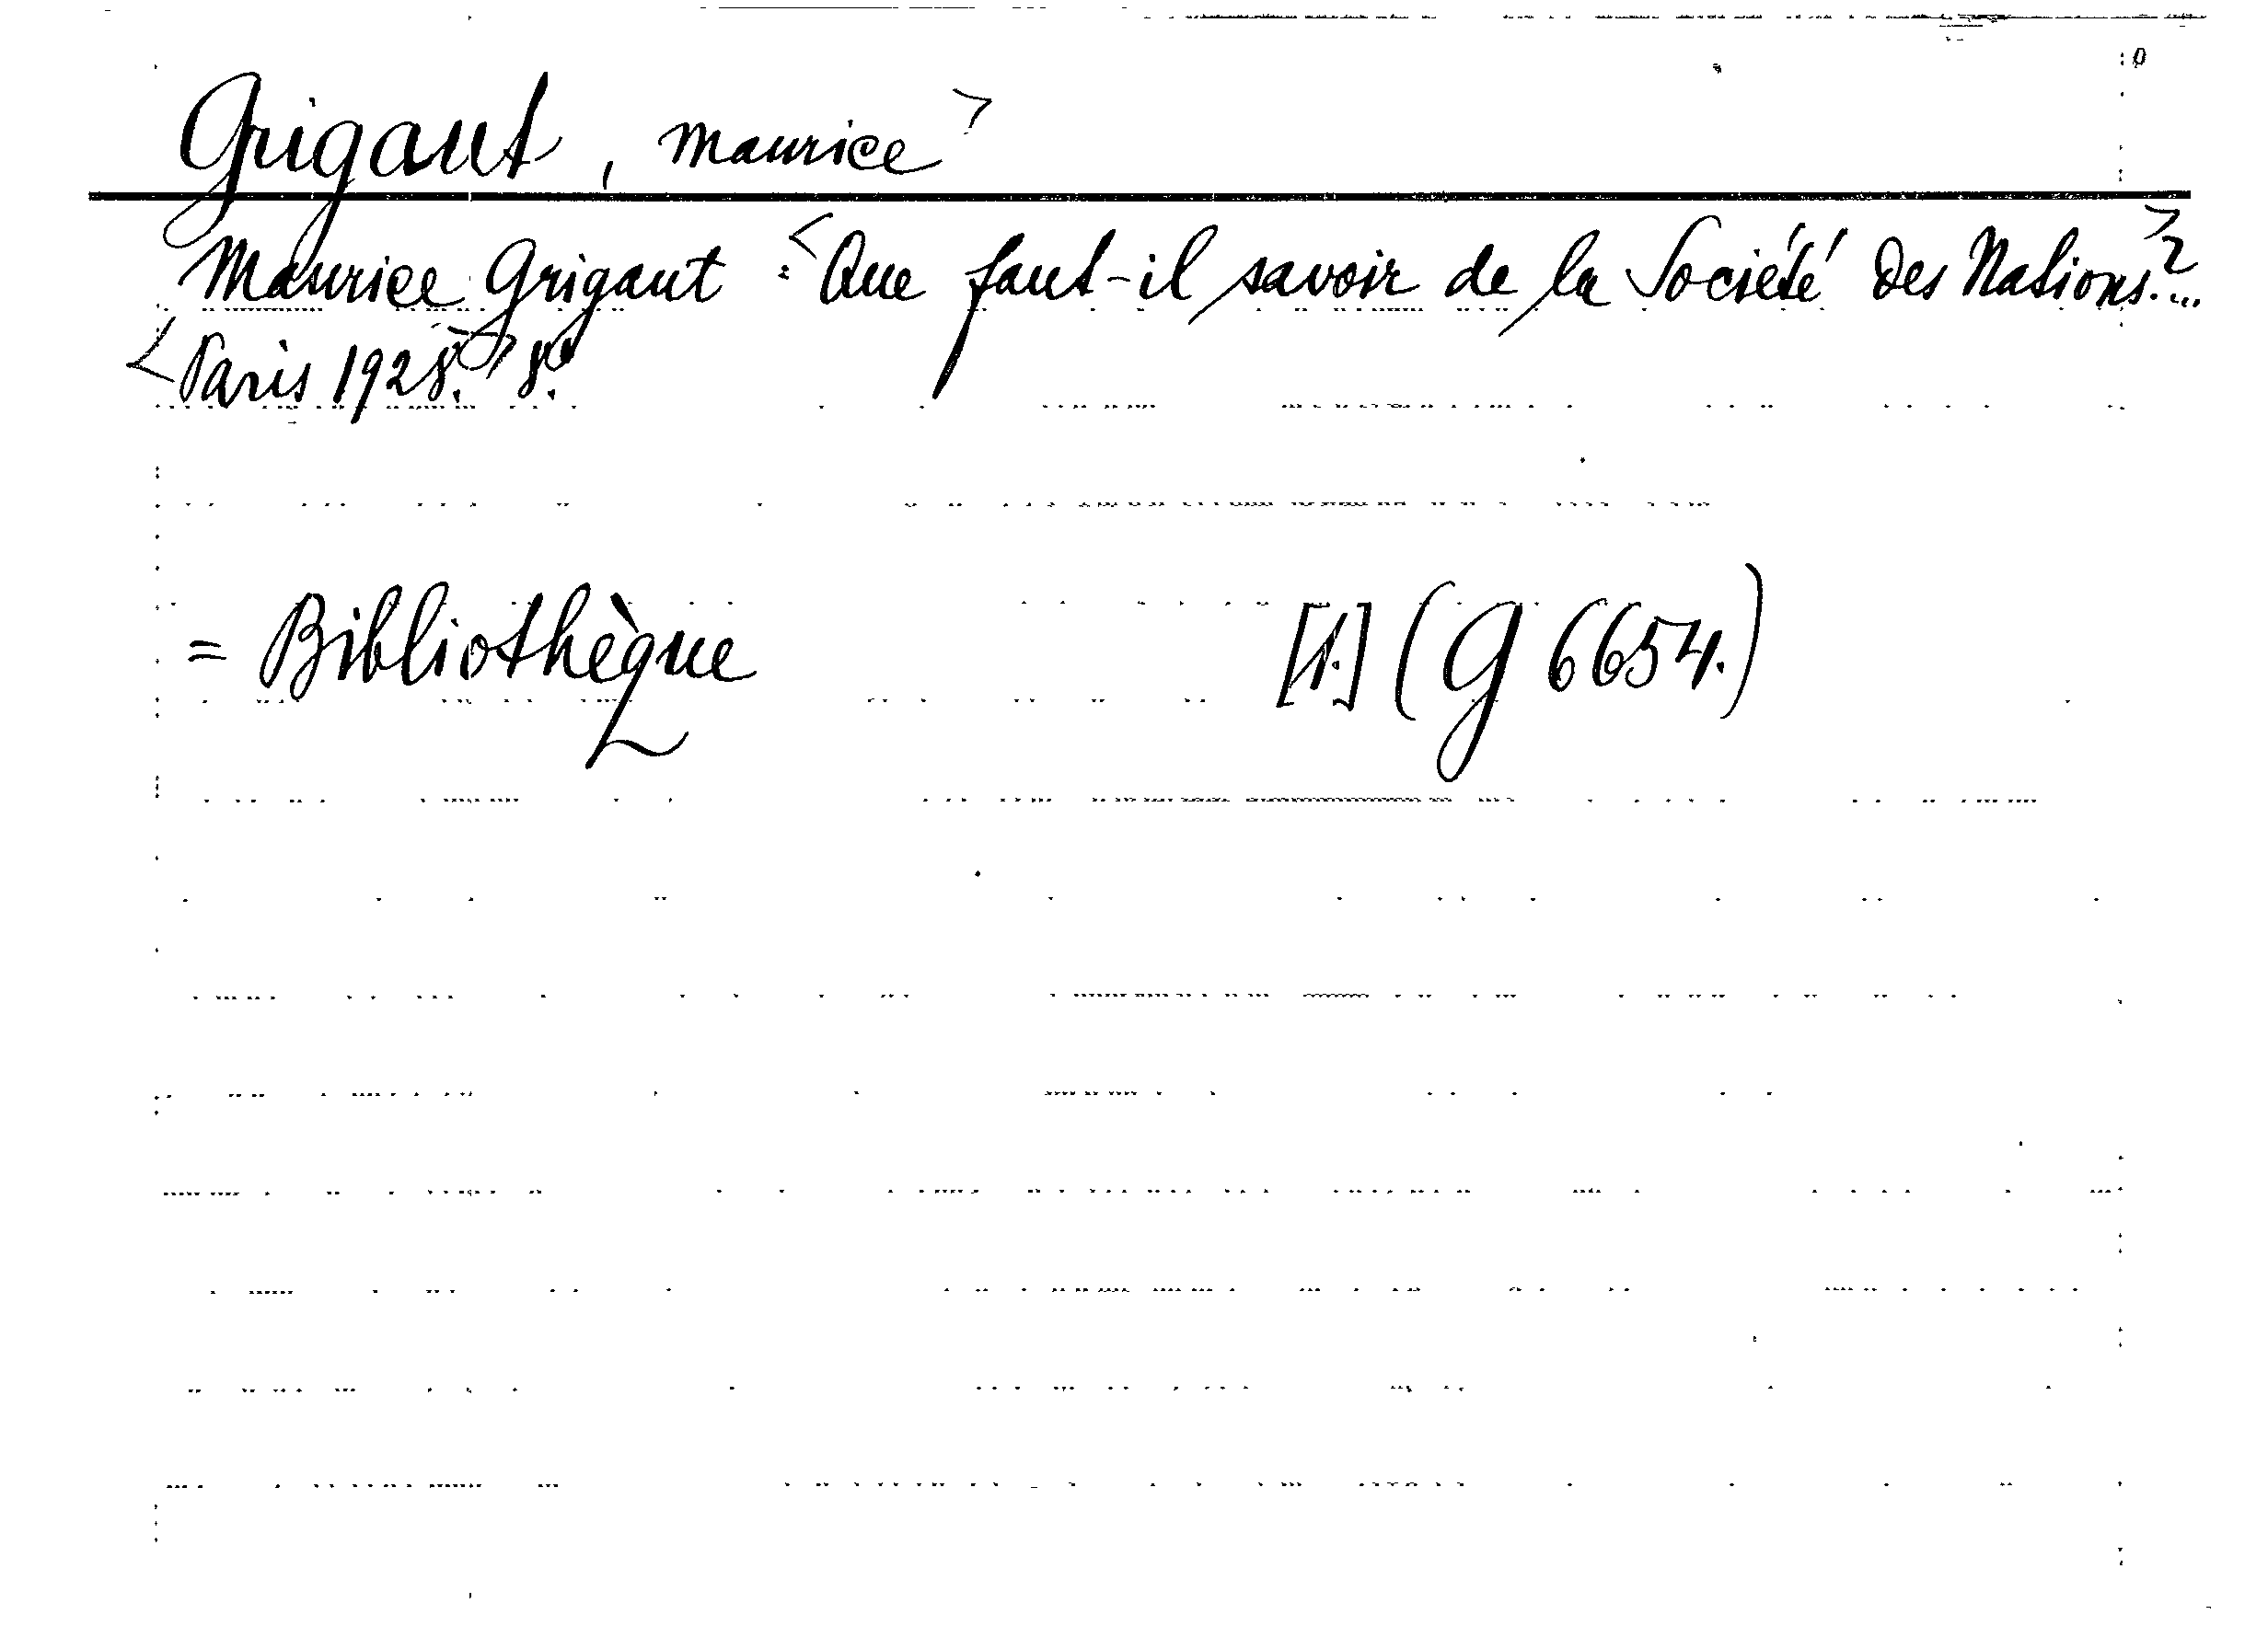 Grigaut, Maurice>
Maurice Grigaut: <Que faut-il savoir de la Société des Nations.>?...
<Paris 1928.> 8°.
= Bibliothèque [1.] (G 6654.)